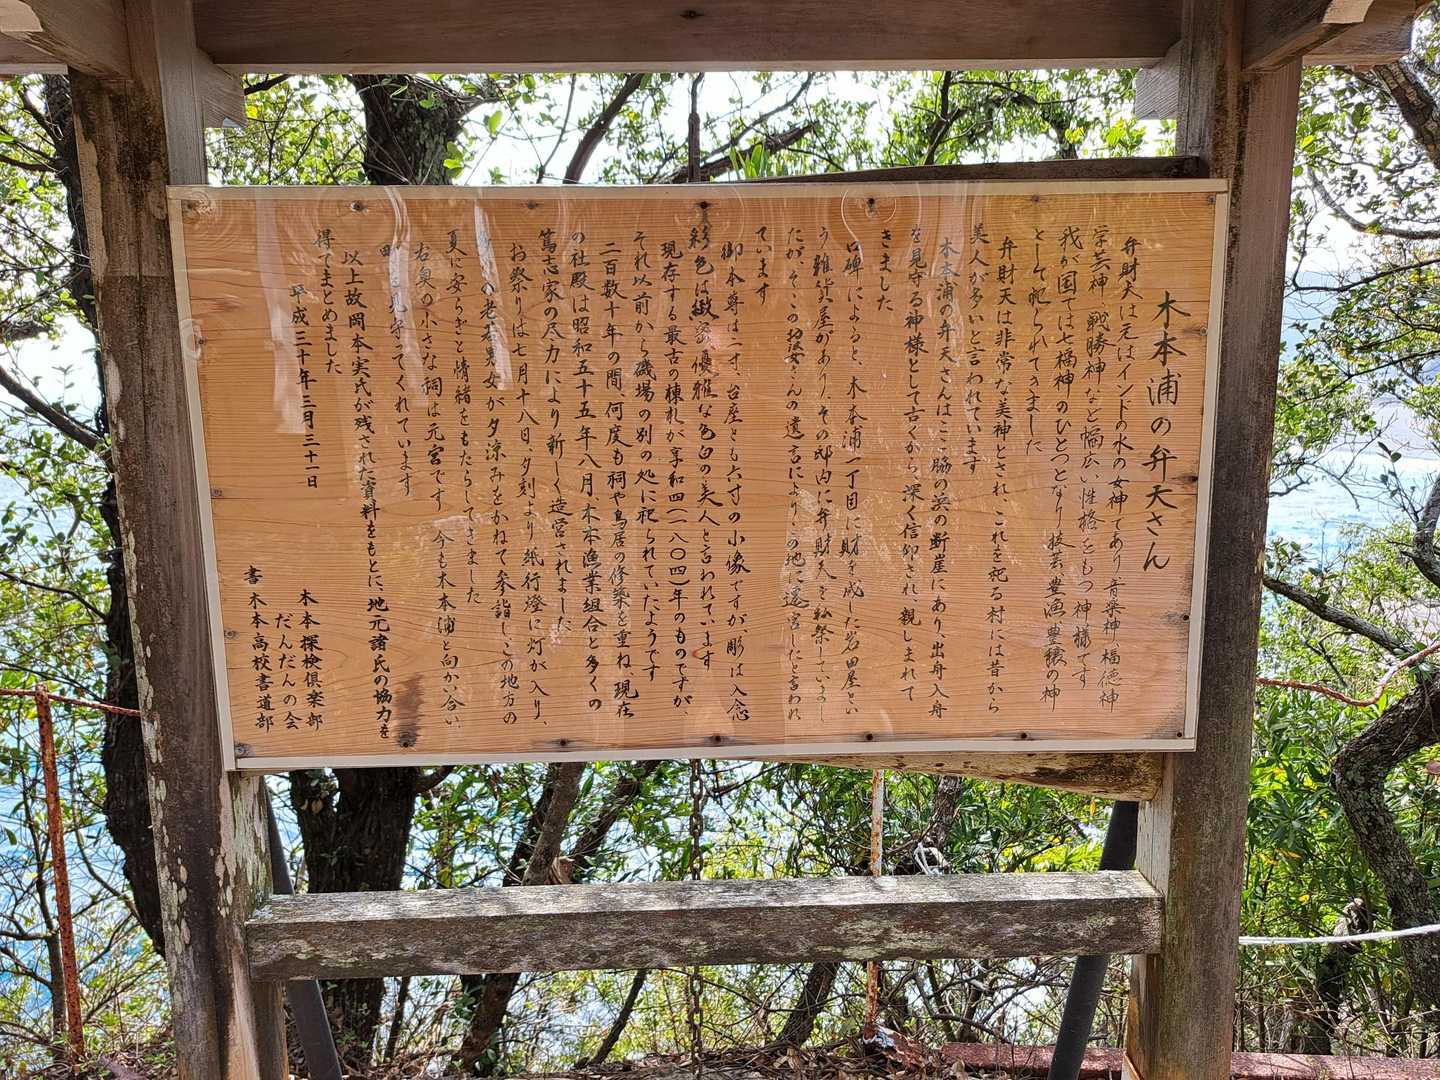 木本浦の弁天さん
弁財天は元はインドの水の女神であり 音楽神 福徳神
学芸神 戦勝神など幅広い性格をもつ神様です
我が国では七福神のひとつとなり 技芸 豊漁 豊穣の神
として祀られてきました
弁財天は非常な美神とされ これを祀る村には昔から
美人が多いと言われています
木本浦の弁天さんはここ脇の浜の断崖にあり、出舟入舟
を見守る神様として古くから深く信仰され 親しまれて
きました
口碑によると、木本浦一丁目に財を成した岩田屋とい
う雑貨屋があり、その邸内に弁財天を私祭していまし
たが、そこのお婆さんの遺言により、この地に遷宮したと言われ
ています
御本尊は一寸、台座とも六寸の小像ですが、彫は入念
彩色は微密 優雅な色白の美人と言われています
現存する最古の棟札が享和四(一八〇四)年のものですが、
それ以前から磯場の別の処に祀られていたようです
二百数十年の間、何度も祠や鳥居の修築を重ね、現在
の社殿は昭和五十五年八月、木本漁業組合と多くの
篤志家の尽力により新しく造営されました
お祭りは七月十八日、夕刻より紙行燈に灯が入り、
の老若男女が夕涼みをかねて参詣し、この地方の
夏に安らぎと情緒をもたらしてきました
右奥の小さな祠は元宮です 今も木本浦と向かい合い
見守ってくれています
以上故岡本実氏が残された資料をもとに、地元諸氏の協力を
得てまとめました
平成三十年三月三十一日
木本探検倶楽部
だんだんの会
書 木本高校書道部